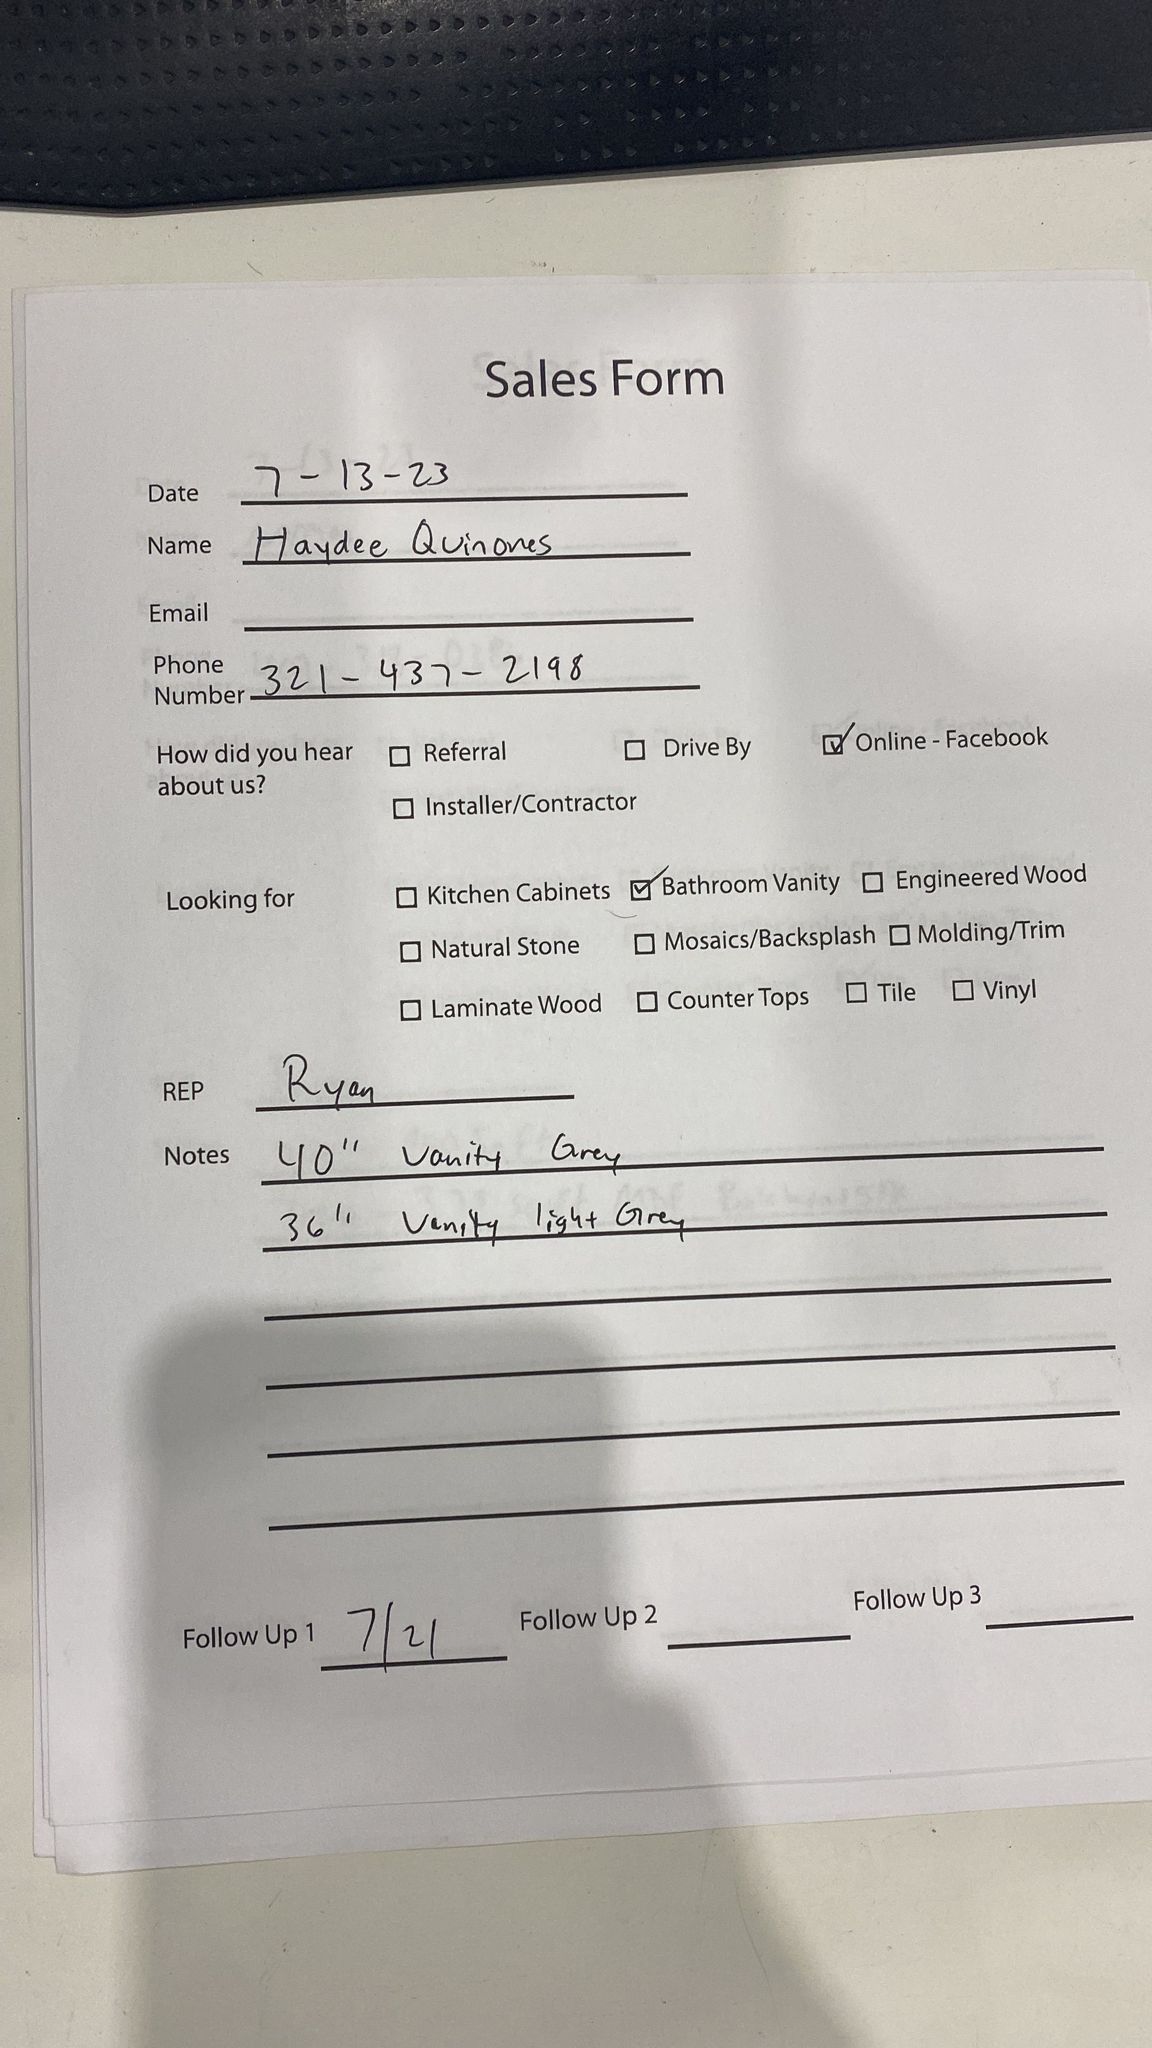 Sales Form
Date 7-13-23
Name Haydee Quinones
Email
Phone Number 321-437-2198
How did you hear about us? ☐ Referral ☐ Drive By ☑ Online - Facebook
☐ Installer/Contractor
Looking for ☐ Kitchen Cabinets ☑ Bathroom Vanity ☐ Engineered Wood
☐ Natural Stone ☐ Mosaics/Backsplash ☐ Molding/Trim
☐ Laminate Wood ☐ Counter Tops ☐ Tile ☐ Vinyl
REP Ryan
Notes 40" Vanity Grey
36" Vanity light Grey
Follow Up 1 7/21 Follow Up 2 Follow Up 3